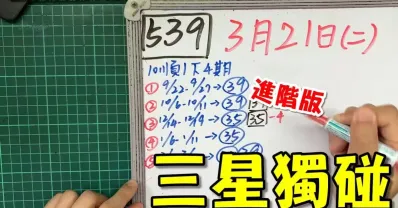 539 3月21日(二)
10順1下4期
進階版
① 9/22-9/27→39
② 10/6-10/11→39
③ 12/14-12/19→35 35 4
④ 1/6-1/11→35
三星獨碰